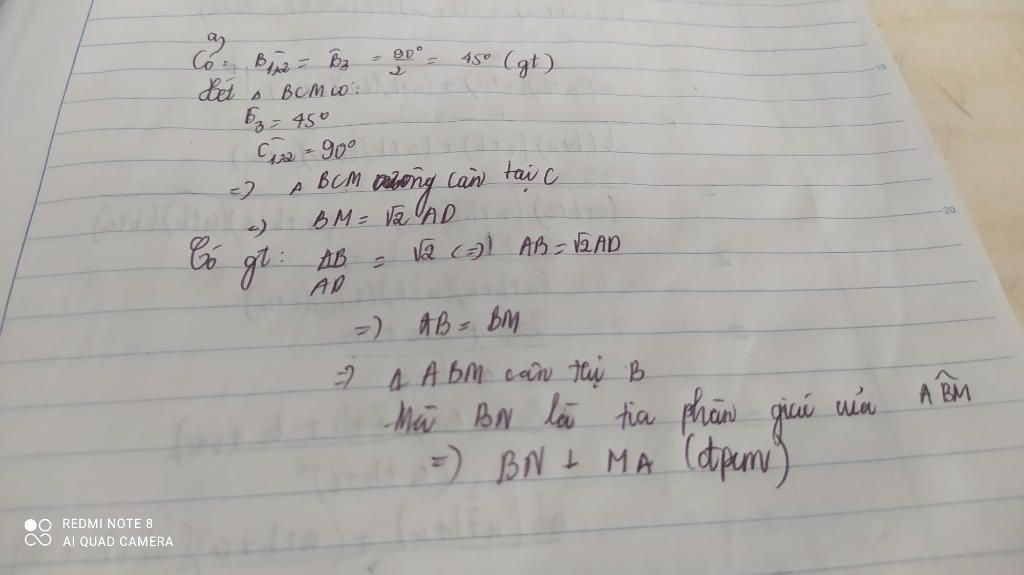 a,
Có: B̂1,2 = B̂3 = 90°/2 = 45° (gt)
Xét Δ BCM có:
B̂3 = 45°
Ĉ1,2 = 90°
=> Δ BCM vuông cân tại C
=> BM = √2 AD
Có gt: AB/AD = √2 (=) AB = √2AD
=> AB = BM
=> Δ ABM cân tại B
Mà BN là tia phân giác của AB̂M
=> BN ⊥ MA (đpcm)
REDMI NOTE 8
AI QUAD CAMERA
20